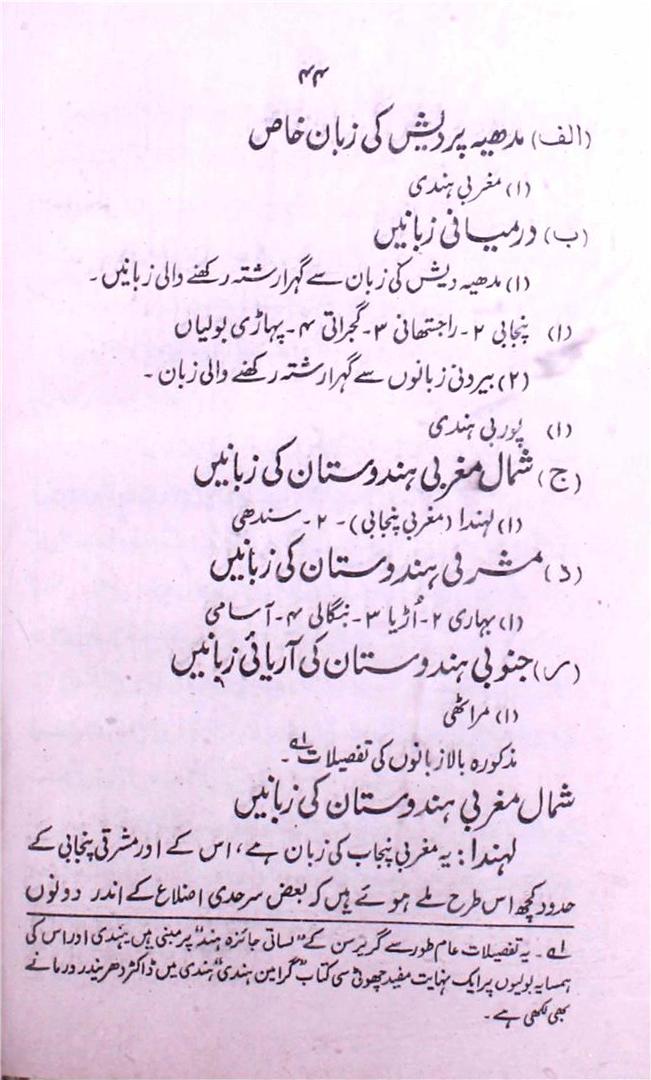 ۴۴
(الف) مدھیہ پردیش کی زبان خاص
(۱) مغربی ہندی
(ب) درمیانی زبانیں
(۱) مدھیہ دیش کی زبان سے گہرا رشتہ رکھنے والی زبانیں۔
(۱) پنجابی ۲۔ راجستھانی ۳۔ گجراتی ۴۔ پہاڑی بولیاں
(۲) بیرونی زبانوں سے گہرا رشتہ رکھنے والی زبان۔
(۱) پوربی ہندی
(ج) شمال مغربی ہندوستان کی زبانیں
(۱) لہندا (مغربی پنجابی)۔ ۲۔ سندھی
(د) مشرقی ہندوستان کی زبانیں
(۱) بہاری ۲۔ اُڑیا ۳۔ بنگالی ۴۔ آسامی
(ر) جنوبی ہندوستان کی آریائی زبانیں
(۱) مراٹھی
مذکورہ بالا زبانوں کی تفصیلات ۱؎۔
شمال مغربی ہندوستان کی زبانیں
لہندا: یہ مغربی پنجاب کی زبان ہے، اس کے اور مشرقی پنجابی کے
حدود کچھ اس طرح ملے ہوئے ہیں کہ بعض سرحدی اضلاع کے اندر دونوں
۱؎۔ یہ تفصیلات عام طور سے گریرسن کے "لسانی جائزہ ہند" پر مبنی ہیں ہندی اور اس کی
ہمسایہ بولیوں پر ایک نہایت مفید چھوٹی سی کتاب "گرامین ہندی" ہندی میں ڈاکٹر دھریندر ورما نے
بھی لکھی ہے۔